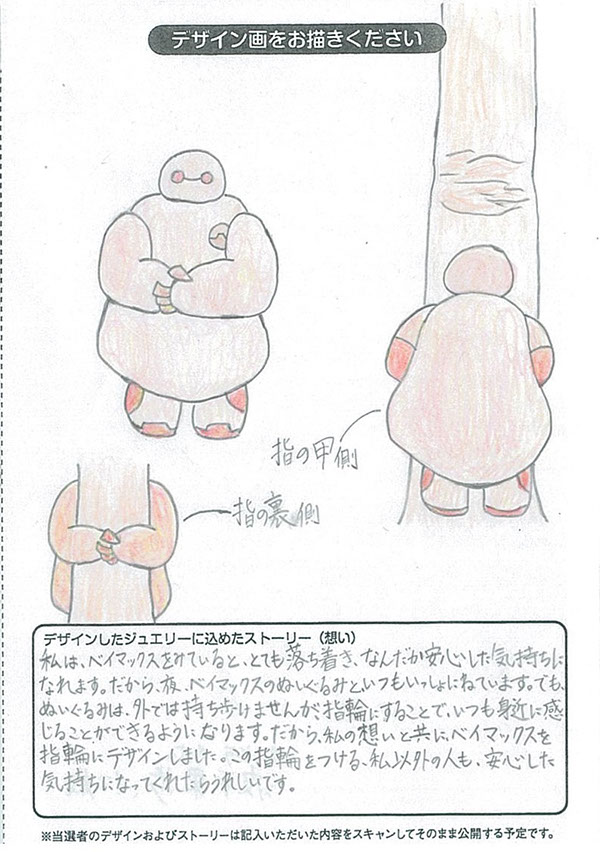 デザイン画をお描きください
指の甲側
指の裏側
デザインしたジュエリーに込めたストーリー（想い）
私は、ベイマックスをみていると、とても落ち着き、なんだか安心した気持ちに
なれます。だから、夜、ベイマックスのぬいぐるみといつもいっしょにねています。でも、
ぬいぐるみは、外では持ち歩けませんが、指輪にすることで、いつも身近に感
じることができるようになります。だから、私の想いと共に、ベイマックスを
指輪にデザインしました。この指輪をつける、私以外の人も、安心した
気持ちになってくれたらうれしいです。
※当選者のデザインおよびストーリーは記入いただいた内容をスキャンしてそのまま公開する予定です。